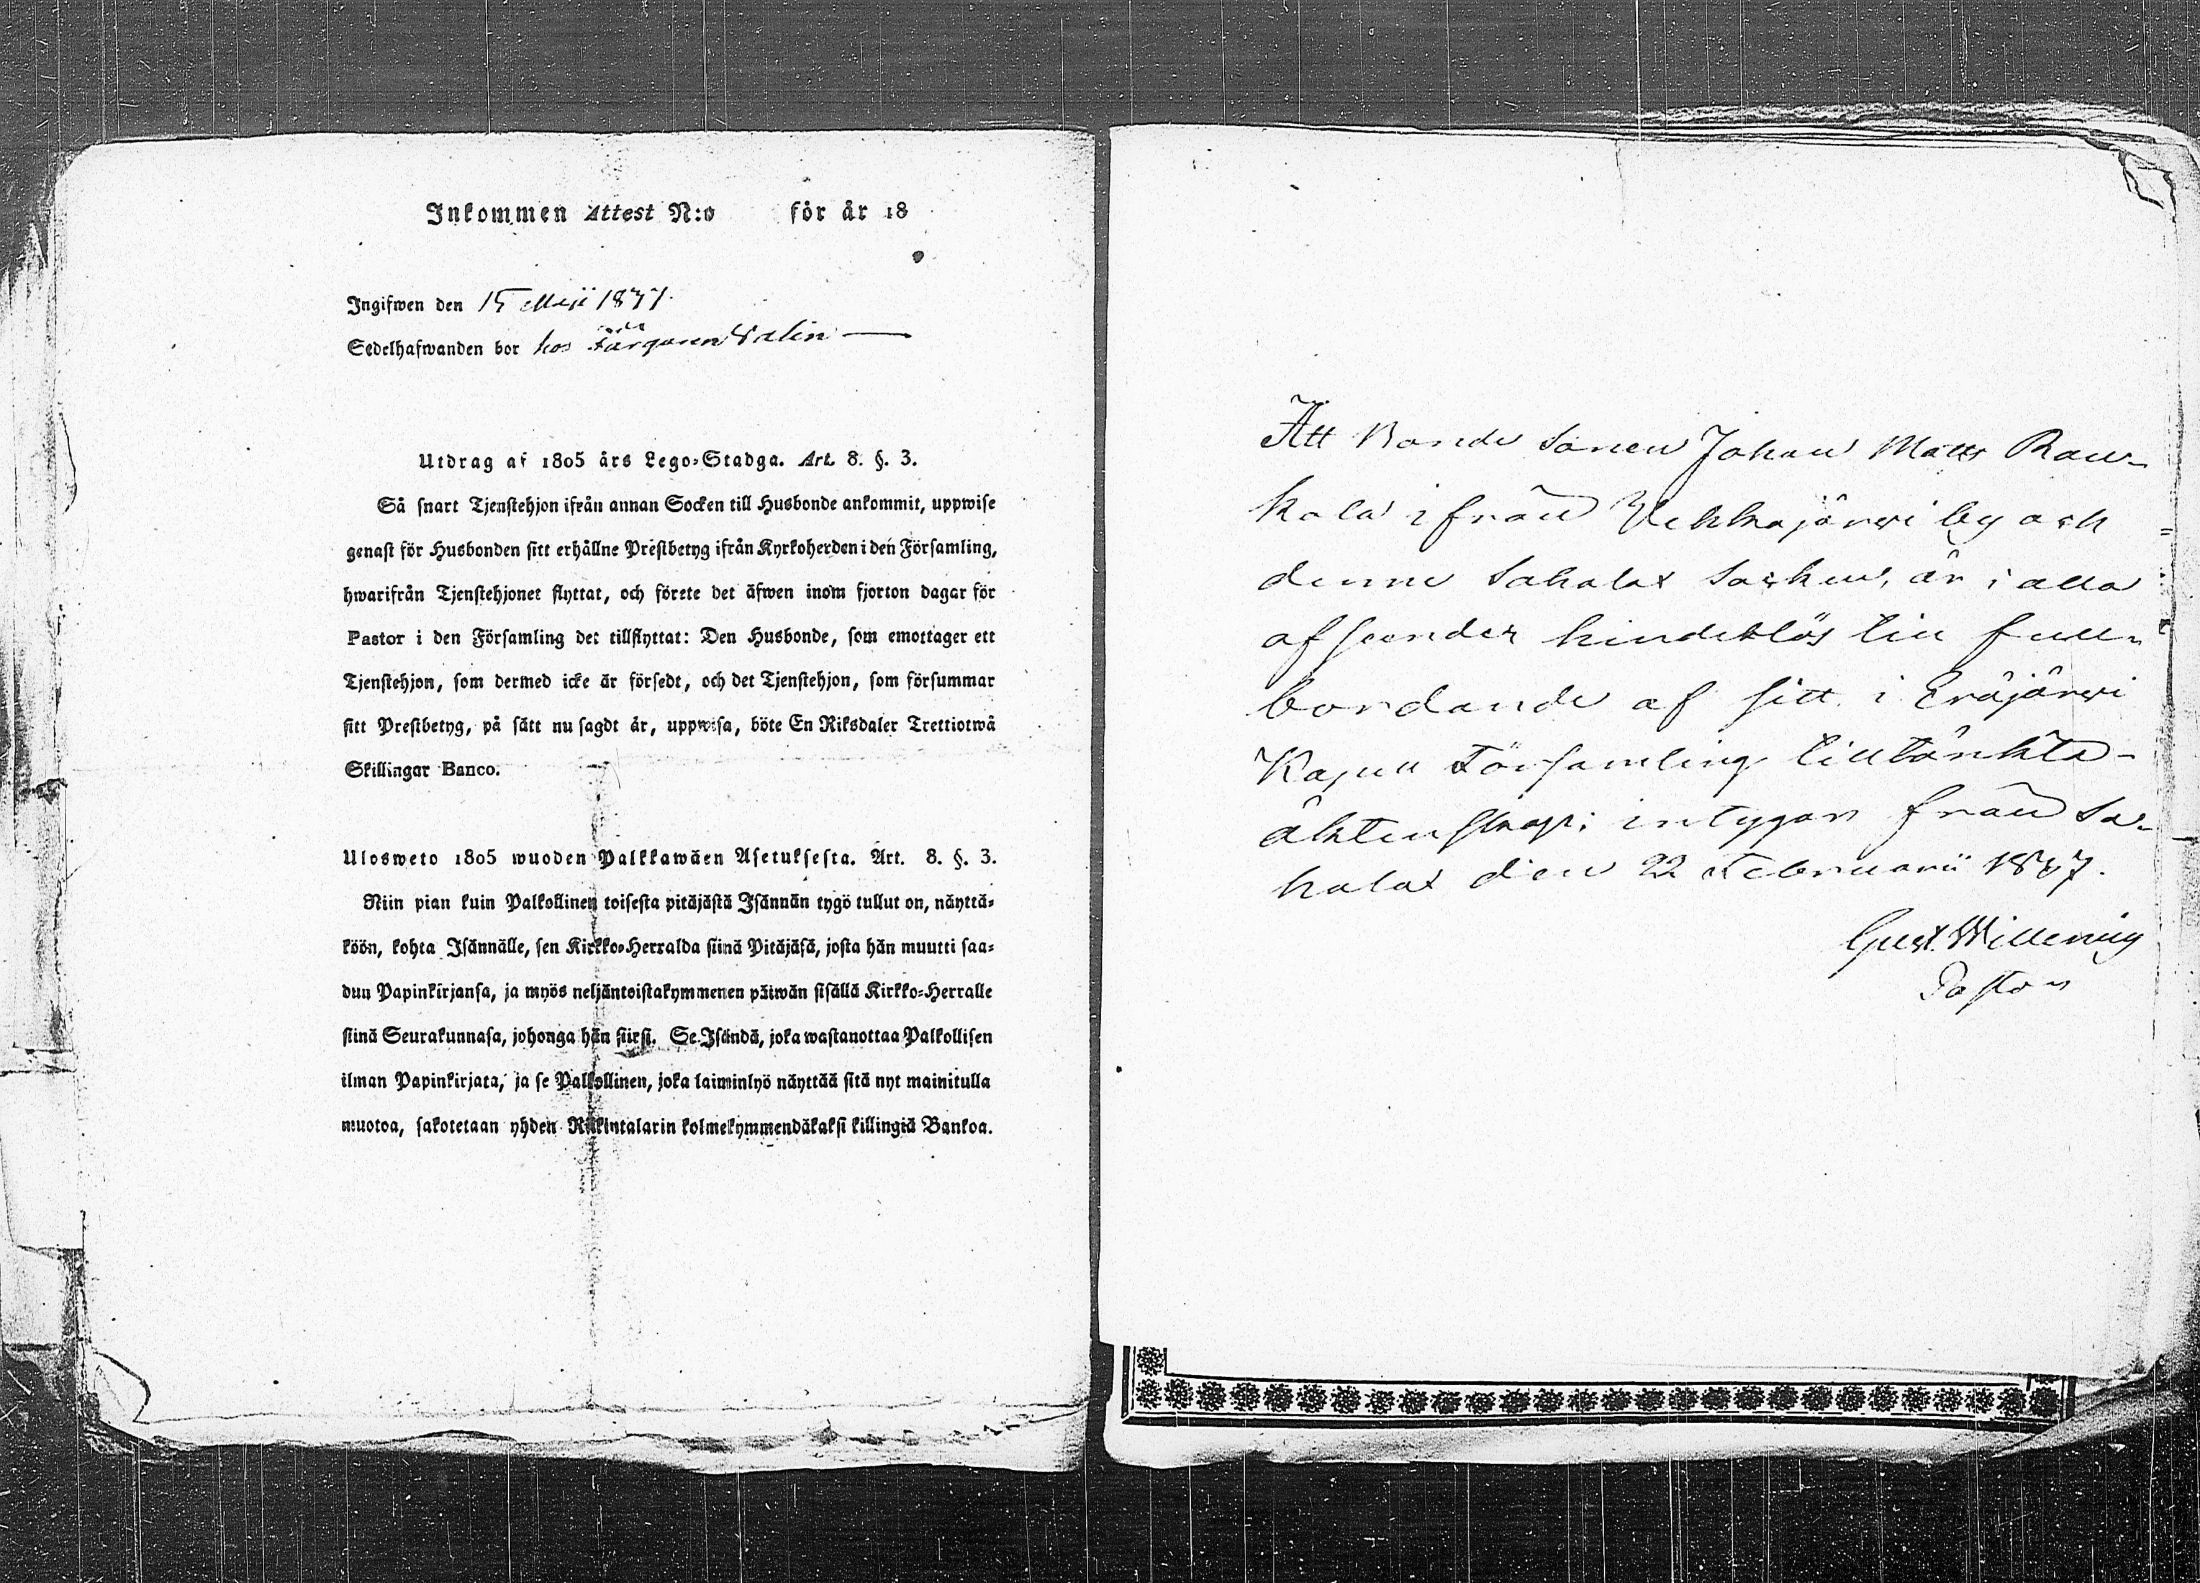 Inkommen Attest N:o för år 18
Ingifwen den 15 Maji 18
Sedelhafwanden bor hos Färgaren Valin
Utdrag af 1805 års Lego-Stadga. Art. 8. §. 3.
Så snart Tjenstehjon ifrån annan Socken till Husbonde ankommit, uppwise
genast för Husbonden sitt erhållne Prestbetyg ifrån Kyrkoherden i den Församling,
hwarifrån Tjenstehjonet flyttat, och förete det äfwen inom fjorton dagar för
Pastor i den Församling det tillflyttat: Den Husbonde, som emottager ett
Tjenstehjon, som dermed icke är försedt, och det Tjenstehjon, som försummar
sitt Prestbetyg, på sätt nu sagdt är, uppwisa, böte En Riksdaler Trettiotwå
Skillingar Banco.
Ulosweto 1805 wuoden Palkkawäen Asetuksesta. Art. 8. §. 3.
Niin pian kuin Palkollinen toisesta pitäjästä Isännän tygö tullut on, näyttä-
köön, kohta Isännälle, sen Kirkko-Herralda siinä Pitäjäsä, josta hän muutti saa-
dun Papinkirjansa, ja myös neljäntoistakymmenen päiwän sisällä Kirkko-Herralle
siinä Seurakunnasa, johonga hän siirsi. Se Isändä, joka wastanottaa Palkollisen
ilman Papinkirjata, ja se Palkollinen, joka laiminlyö näyttää sitä nyt mainitulla
muotoa, sakotetaan yhden Riikintalarin kolmekymmendäkaksi killingiä Bankoa.
Att Bonde Sonen Johan Matts Rau-
kola ifrån Vehkajärvi by och
denne Sahalax Socken, är i alla
afseender hinderlös till full-
bordande af sitt i Eräjärvi
Kapell Församling tilltänkta
äktenskap; intygar från Sa-
halax den 22 Februarii 1847.
Gust. Willenius
Pastor